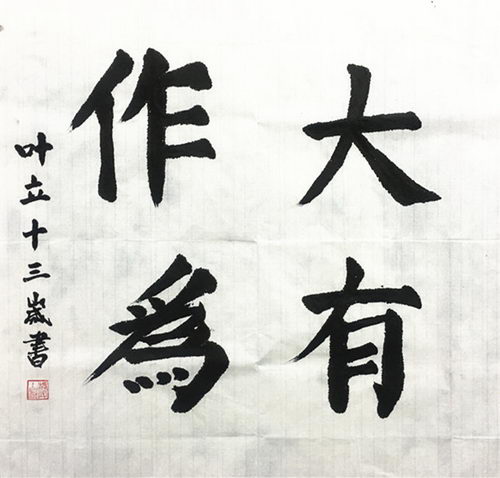 大有
作為
叶立十三歲書